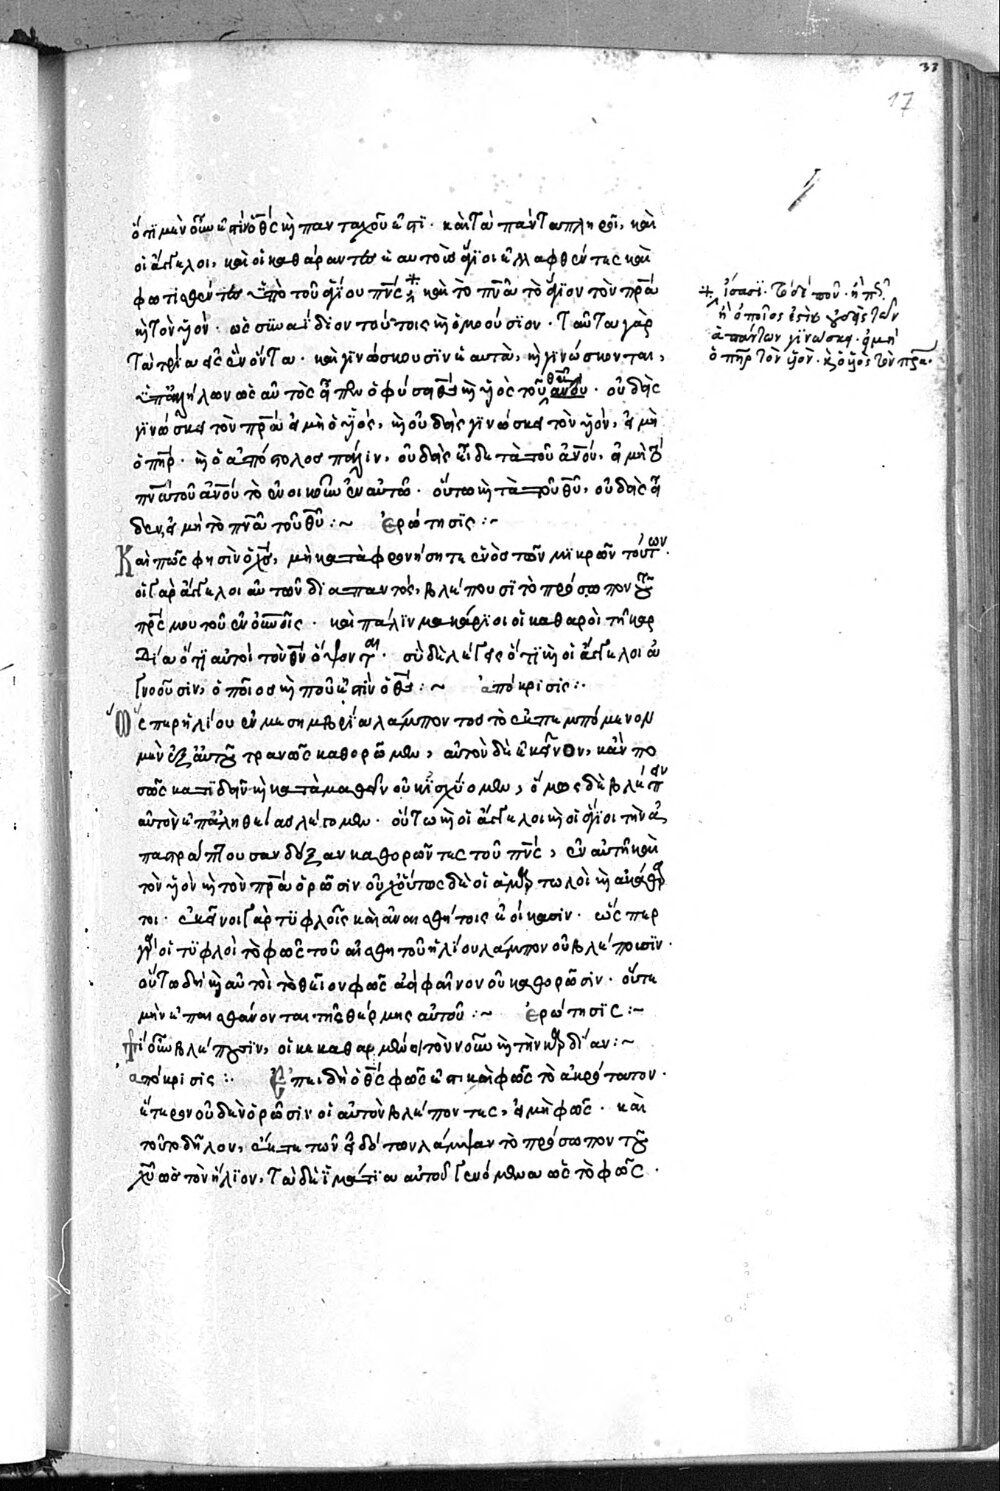 33
17
ὅτι μὲν οὖν ἐστὶν ὁ θς καὶ πανταχοῦ ἐστι · καὶ τὰ πάντα πληροῖ, καὶ
οἱ ἄγγελοι, καὶ οἱ καθάραντες ἑαυτοὺς ἅγιοι ἐλλαφθέντες καὶ
φωτισθέντες ὑπὸ τοῦ ἁγίου πνς · καὶ τὸ πνα τὸ ἅγιον τὸν πρα
καὶ τὸν υἱόν · ὡς συναΐδιον τούτοις καὶ ὁμοούσιον · ταῦτα γὰρ
τὰ τρία εἷς ἓν ὄντα · καὶ γινώσκουσιν ἑαυτά, καὶ γινώσκονται,
ὑπαλλήλων ὡς αὐτὸς εἶπεν ὁ φύσει θς καὶ υἱὸς τοῦ θυ ανου · οὐδεὶς
γινώσκει τὸν πρα εἰ μὴ ὁ υἱός, καὶ οὐδεὶς γινώσκει τὸν υἱόν, εἰ μὴ
ὁ πηρ · καὶ ὁ ἀπόστολος πάλιν, οὐδεὶς οἶδε τὰ τοῦ ανου, εἰ μὴ τὸ
πνα τοῦ ανου τὸ ἐνοικοῦν ἐν αὐτῶ · οὕτω καὶ τὰ τοῦ θυ, οὐδεὶς οἶ
δεν, εἰ μὴ τὸ πνα τοῦ θυ :~ Ἐρώτησις :~
Καὶ πῶς φησὶν ὁ χς, μὴ καταφρονήσητε ἑνὸς τῶν μικρῶν τούτων ·
οἱ γὰρ ἄγγελοι αὐτῶν διαπαντός, βλέπουσι τὸ πρόσωπον τοῦ
πρς μου τοῦ ἐν οὐνοῖς · καὶ πάλιν μακάριοι οἱ καθαροὶ τῆ καρ
δία ὅτι αὐτοὶ τὸν θν ὄψονται · σὺ δὲ λέγεις ὅτι καὶ οἱ ἄγγελοι ἀ
γνοοῦσιν, ὁποῖος καὶ ποῦ ἐστὶν ὁ θς :~ ἀπόκρισις :·
Ὥσπερ ἡλίου ἐν μεσημβρία λάμποντος τὸ ἐκπεμπόμενον
μὲν ἐξ αὐτοῦ τρανῶς καθορῶμεν, αὐτὸν δὲ ἐκεῖνον, κἂν πο
σῶς κατιδεῖν καὶ καταμαθεῖν οὐκ ἰσχύομεν, ὅμως δὲ βλέπειν
αὐτὸν ἐπ' ἀληθείας λέγομεν · οὕτω καὶ οἱ ἄγγελοι καὶ οἱ ἅγιοι τὴν ἀ
παστράπτουσαν δόξαν καθορῶντες τοῦ πνς, ἐν αὐτῆ καὶ
τὸν υἱὸν καὶ τὸν πρα ὁρῶσιν οὐχ οὕτως δὲ οἱ ἁμαρτωλοὶ καὶ ἀκάθαρ
τοι · ἐκεῖνοι γὰρ τυφλοῖς καὶ ἀναισθήτοις ἐοίκασιν · ὥσπερ
γὰρ οἱ τυφλοὶ τὸ φῶς τοῦ αἰσθητοῦ ἡλίου λάμπον οὐ βλέπουσιν ·
οὕτω δὴ καὶ αὐτοὶ τὸ θεῖον φῶς ἀεὶ φαῖνον οὐ καθορῶσιν · οὔτε
μὴν ἐπαισθάνονται τῆς θέρμης αὐτοῦ :~ Ἐρώτησις :~
Τί οὖν βλέπουσιν, οἱ κεκαθαρμένοι τὸν νοῦν καὶ τὴν καρδίαν :~
ἀπόκρισις :· Ἐπειδὴ ὁ θς φῶς ἐστι καὶ φῶς τὸ ἀκρότατον ·
ἕτερον οὐδὲν ὁρῶσιν οἱ αὐτὸν βλέποντες, εἰ μὴ φῶς · καὶ
τοῦτο δῆλον, ἔκ τε τῶν εἰδότων λάμψαν τὸ πρόσωπον τοῦ
χυ ὡς τὸν ἥλιον, τὰ δὲ ἱμάτια αὐτοῦ γενόμενα ὡς τὸ φῶς ·
ἴσασι · τὸ δέ ποῦ ·
ἢ ὁποῖος ἐστὶν οὐδεὶς τῶν
ἁπάντων γινώσκει · εἰ μὴ
ὁ πηρ τὸν υἱόν · καὶ ὁ υἱὸς τὸν πρα ·